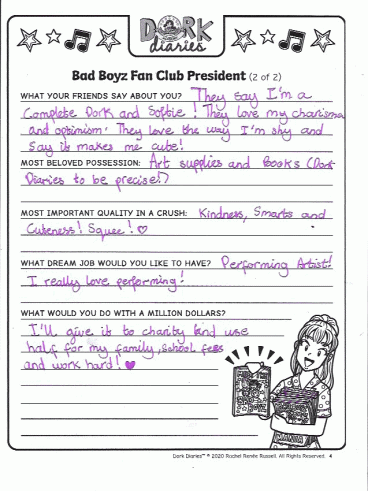 DORK
diaries
Bad Boyz Fan Club President (2 of 2)
WHAT YOUR FRIENDS SAY ABOUT YOU? They say I'm a
Complete Dork and Softie! They love my charisma
and optimism. They love the way I'm shy and
say it makes me cute!
MOST BELOVED POSSESSION: Art supplies and Books (Dork
Diaries to be precise!)
MOST IMPORTANT QUALITY IN A CRUSH: Kindness, Smarts and
Cuteness! Squee! ♡
WHAT DREAM JOB WOULD YOU LIKE TO HAVE? Performing Artist!
I really love performing!
WHAT WOULD YOU DO WITH A MILLION DOLLARS?
I'll give it to charity and use
half for my family, school fees
and work hard! ♥
Dork Diaries™ © 2020 Rachel Renée Russell. All Rights Reserved. 4